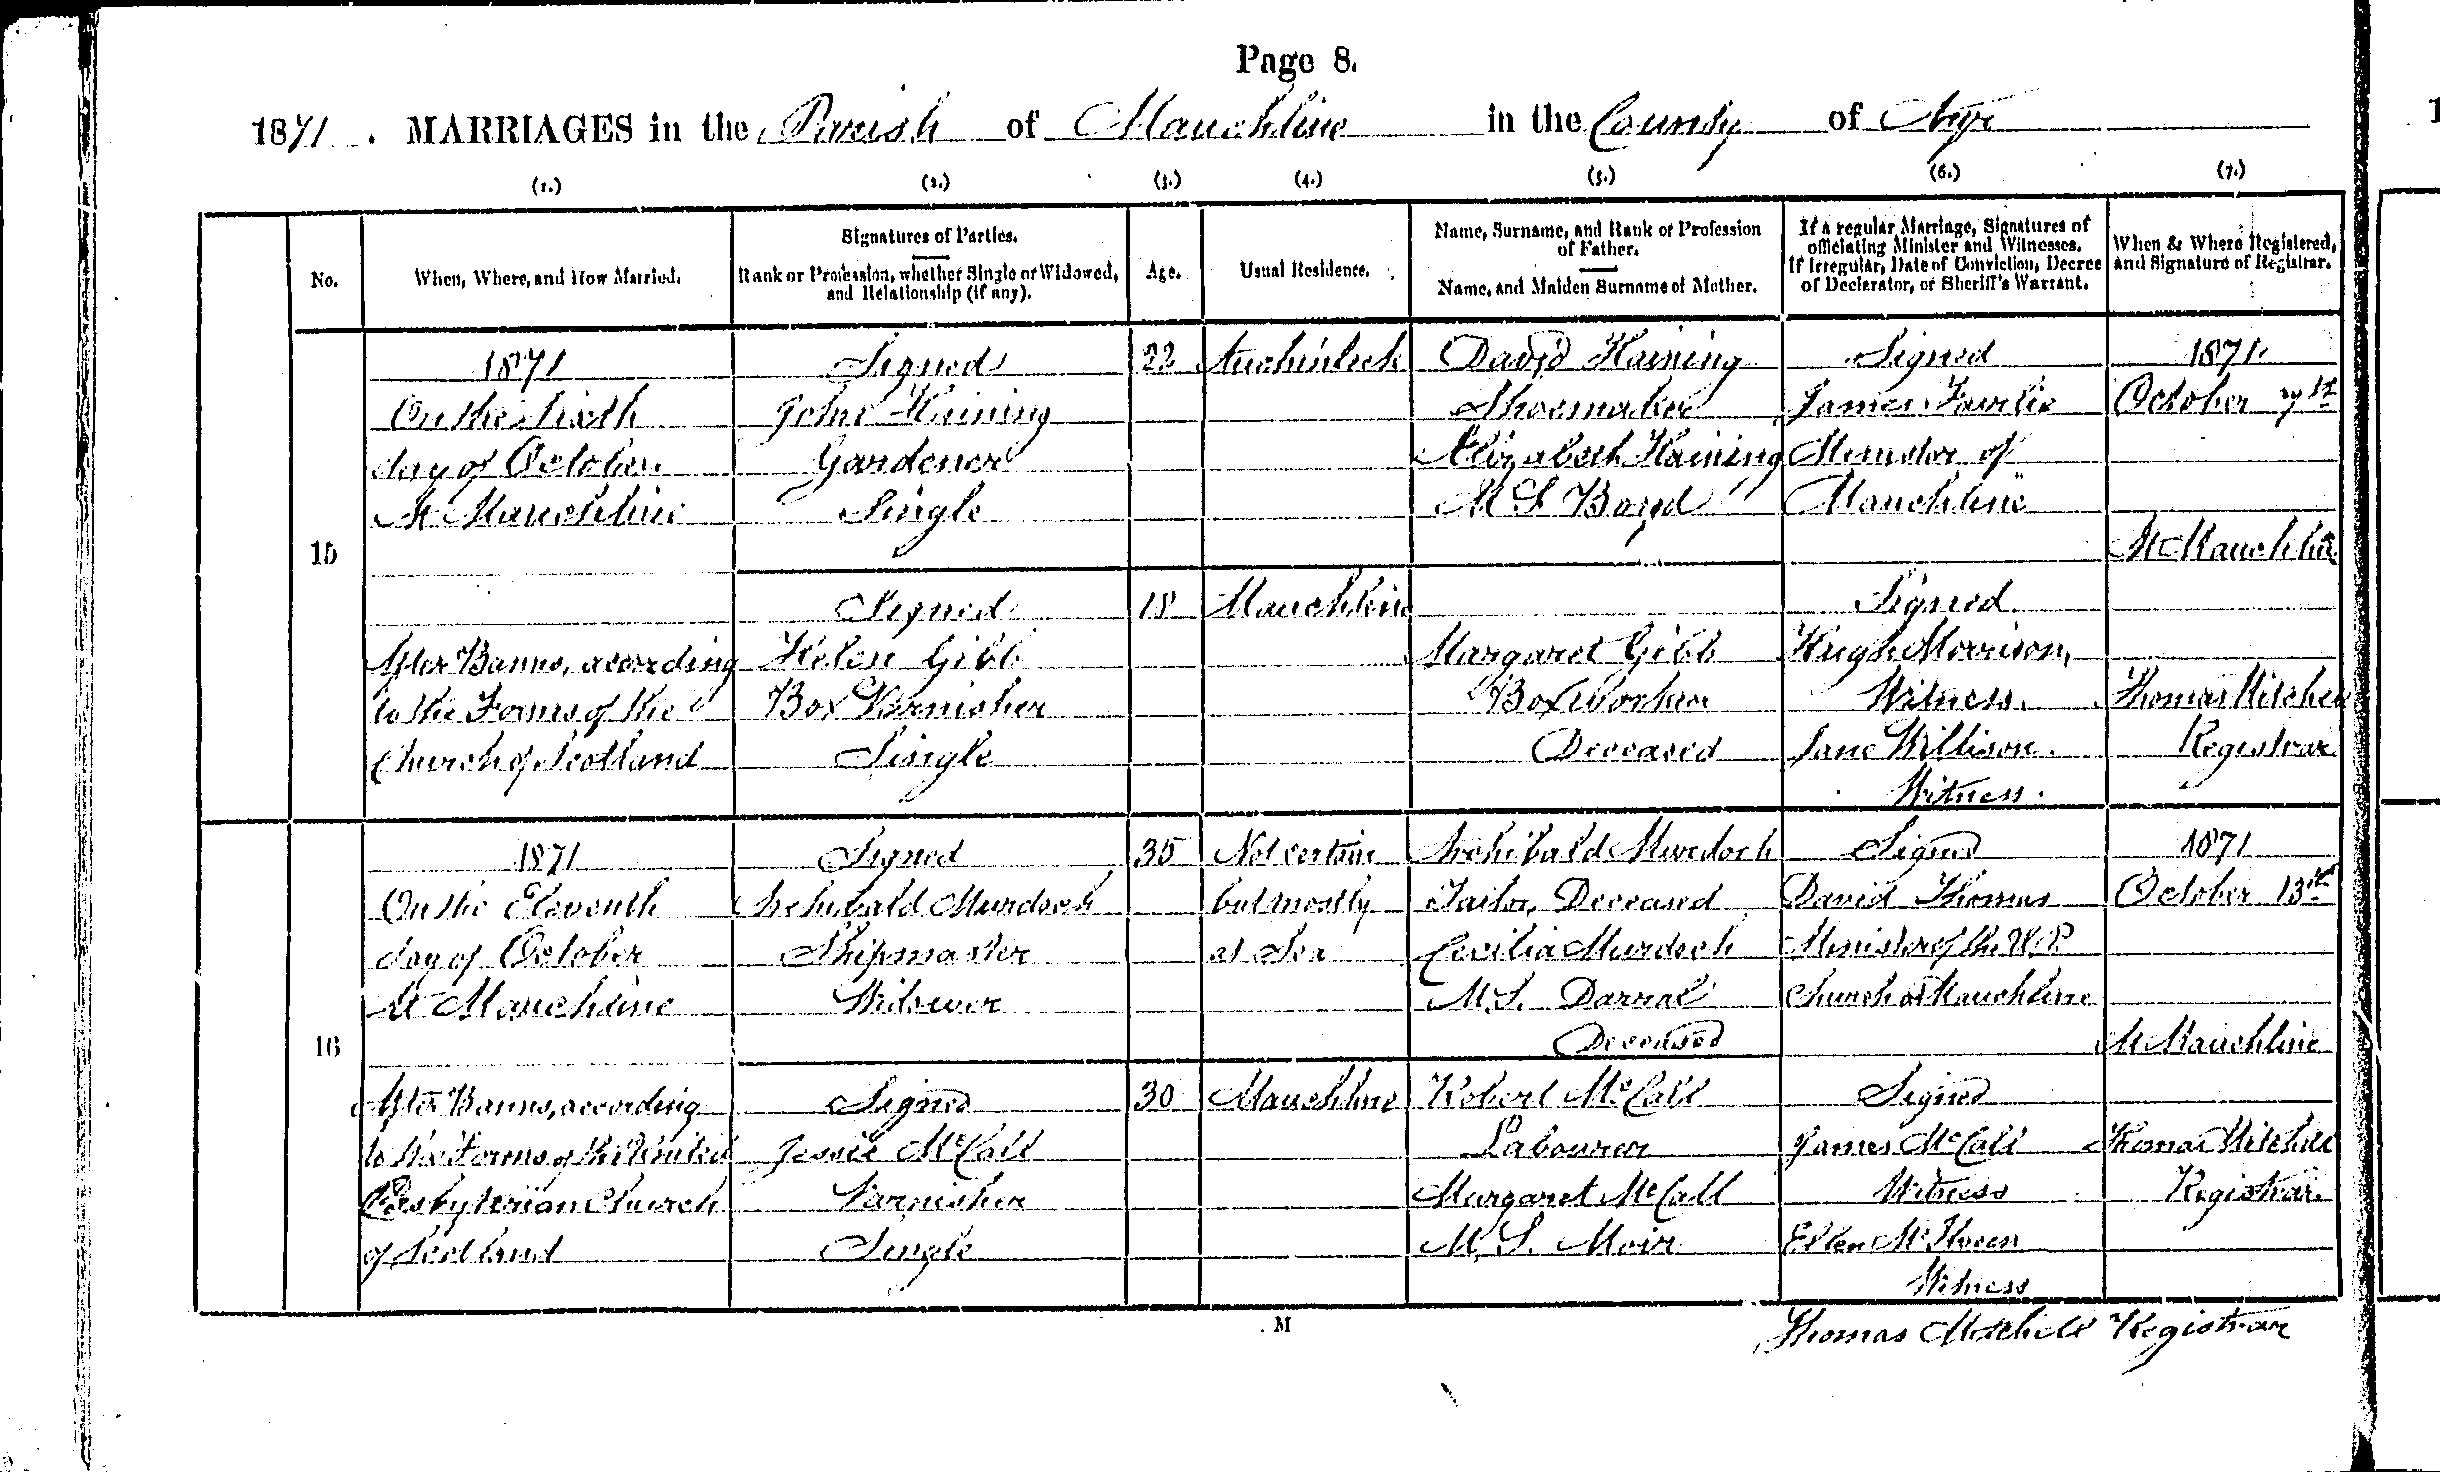 Page 8.
1871. MARRIAGES in the Parish of Mauchline in the County of Ayr
(1.) (2.) (3.) (4.) (5.) (6.) (7.)
No.
When, Where, and How Married.
Signatures of Parties.
Rank or Profession, whether Single or Widowed,
and Relationship (if any).
Age.
Usual Residence.
Name, Surname, and Rank or Profession
of Father.
Name, and Maiden Surname of Mother.
If a regular Marriage, Signatures of
officiating Minister and Witnesses.
If irregular, Date of Conviction, Decree
of Declarator, or Sheriff's Warrant.
When & Where Registered,
and Signature of Registrar.
15
1871
On the Sixth
day of October
At Mauchline
After Banns, acording
to the Forms of the
Church of Scotland
Signed
John Haining
Gardener
Single
22
Auchinleck
David Haining
Shoemaker
Elizabeth Haining
M S Boyd
Signed
Helen Gibb
Box Varnisher
Single
18
Mauchline
Margaret Gibb
Box Worker
Deceased
Signed
James Fairlie
Minister of
Mauchline
Signed
Hugh Morrison,
Witness.
Jane Willison.
Witness.
1871.
October
At Mauchline
Thomas Mitchell
Registrar
16
1871
On the Eleventh
day of October
At Mauchline
After Banns, according
to the Forms of the United
Presbyterian Church
of Scotland
Signed
Archibald Murdoch
Shipmaster
Widower
35
Not certain
but mostly
at Sea
Archibald Murdoch
Tailor, Deceased
Cecilia Murdoch
M.S. Darral
Deceased
Signed
Jessie McCall
Varnisher
Single
30
Mauchline
Robert McCall
Labourer
Margaret McCall
M.S. Moir
Signed
David Thomas
Minister of the U.P.
Church at Mauchline
Signed
James McCall
Witness
Ellen
Witness
1871
October 13th
At Mauchline
Thomas Mitchell
Registrar.
M
Thomas Mitchell Registrar